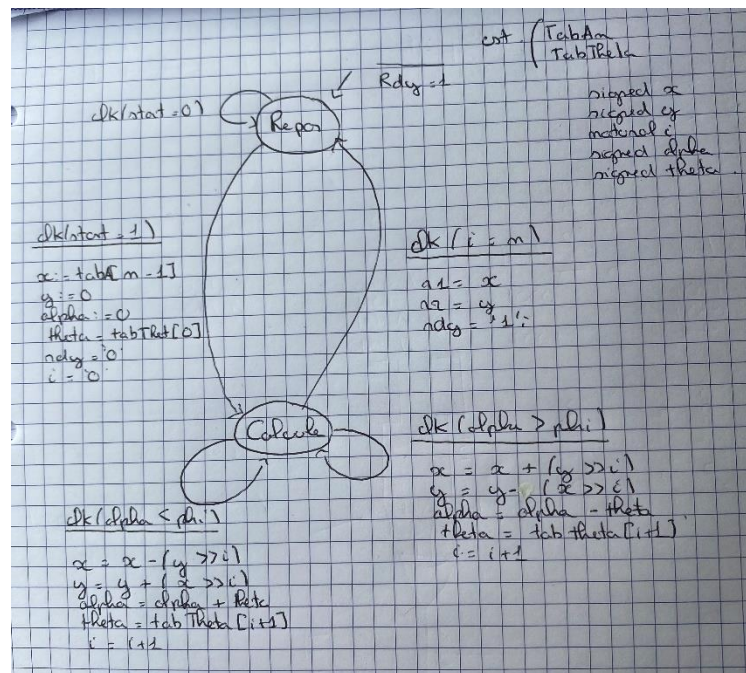 cst ( TabAn
TabTheta
Rdy = 1
signed x
signed y
natural i
signed alpha
signed theta
clk(start=0)
Repos
clk(start = 1)
x := tabA[n-1]
y := 0
alpha := 0
theta = tabThet[0]
rdy = '0'
i = '0'
clk (i = n)
a1 = x
a2 = y
rdy = '1';
Calcule
clk (alpha > phi)
x = x + (y >> i)
y = y - (x >> i)
alpha = alpha - theta
theta = tab theta[i+1]
i = i+1
clk(alpha < phi)
x = x - (y >> i)
y = y + (x >> i)
alpha = alpha + theta
theta = tabTheta[i+1]
i = i+1